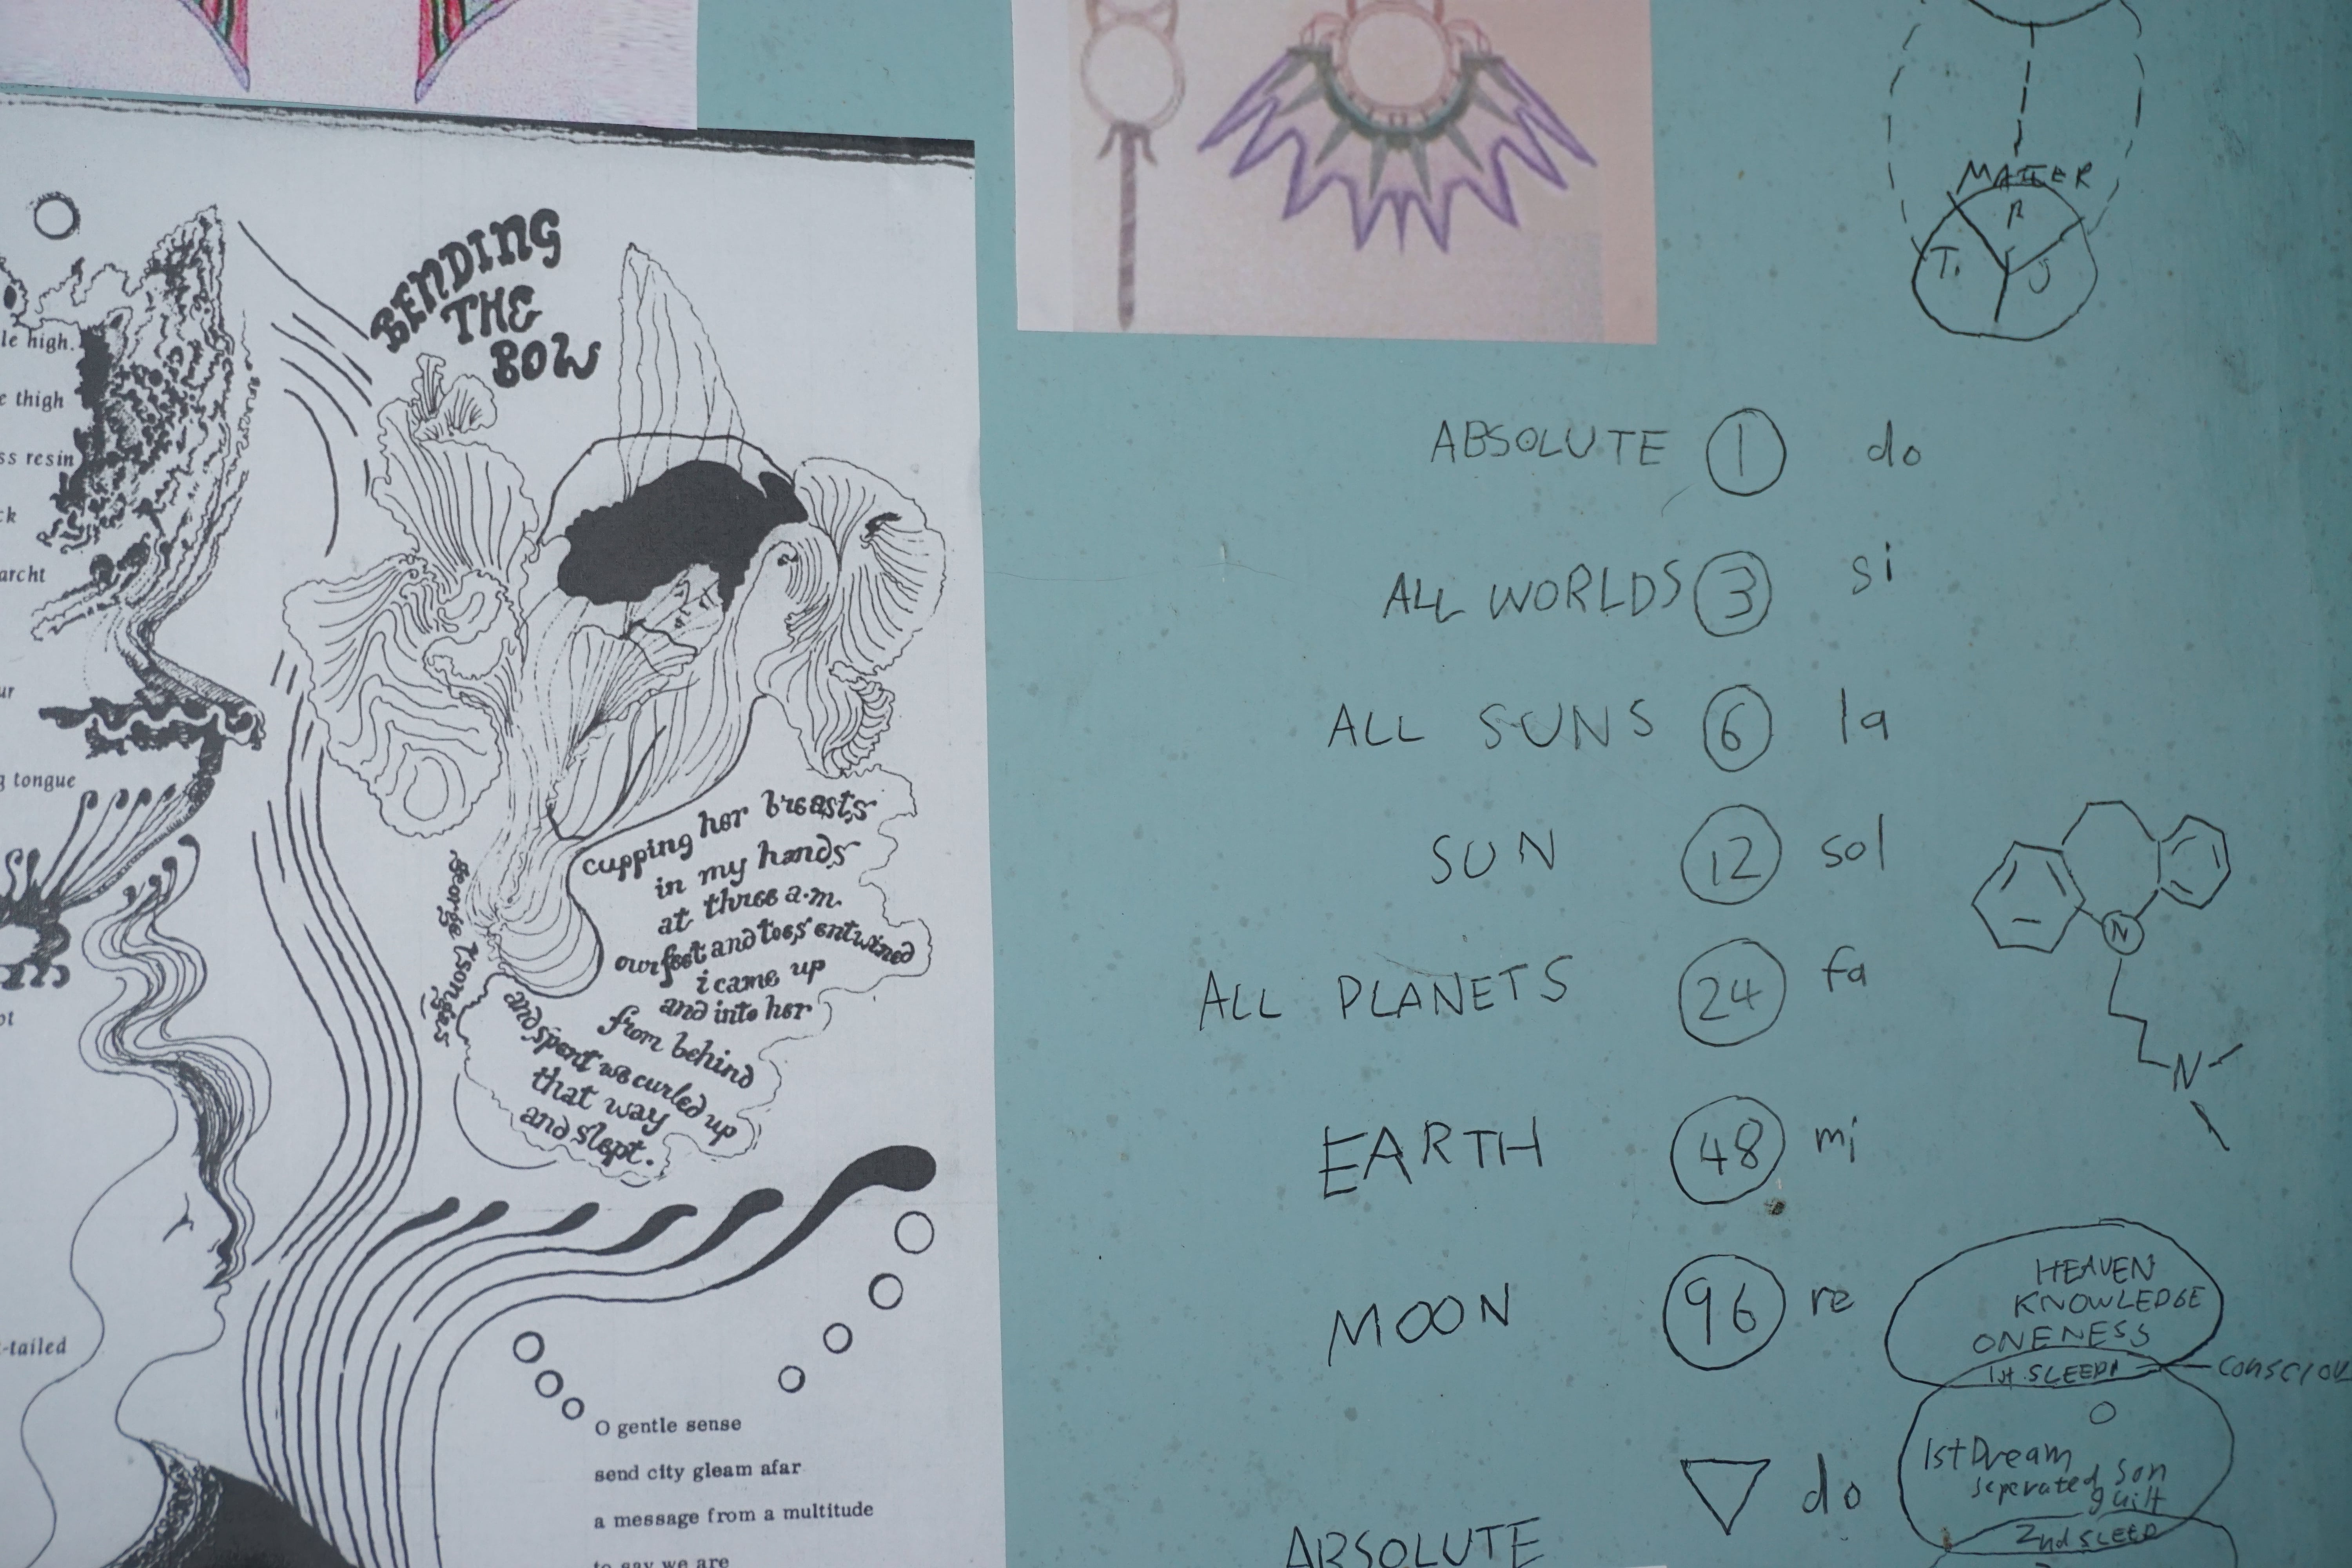 le high.
thigh
ss resin
ck
archt
ur
tongue
-tailed
BENDING
THE
BOW
cupping her breasts
in my hands
at three a.m.
our feet and toes entwined
i came up
and into her
from behind
and spent we curled up
that way
and slept.
george tsongas
O gentle sense
send city gleam afar
a message from a multitude
to say we are
MATTER
R
T.
J
ABSOLUTE 1 do
ALL WORLDS 3 si
ALL SUNS 6 la
SUN 12 sol
ALL PLANETS 24 fa
EARTH 48 mi
MOON 96 re
do
ABSOLUTE
N
N
HEAVEN
KNOWLEDGE
ONENESS
1st SLEEP
CONSCIOU
1st Dream
seperated son
guilt
2nd SLEEP